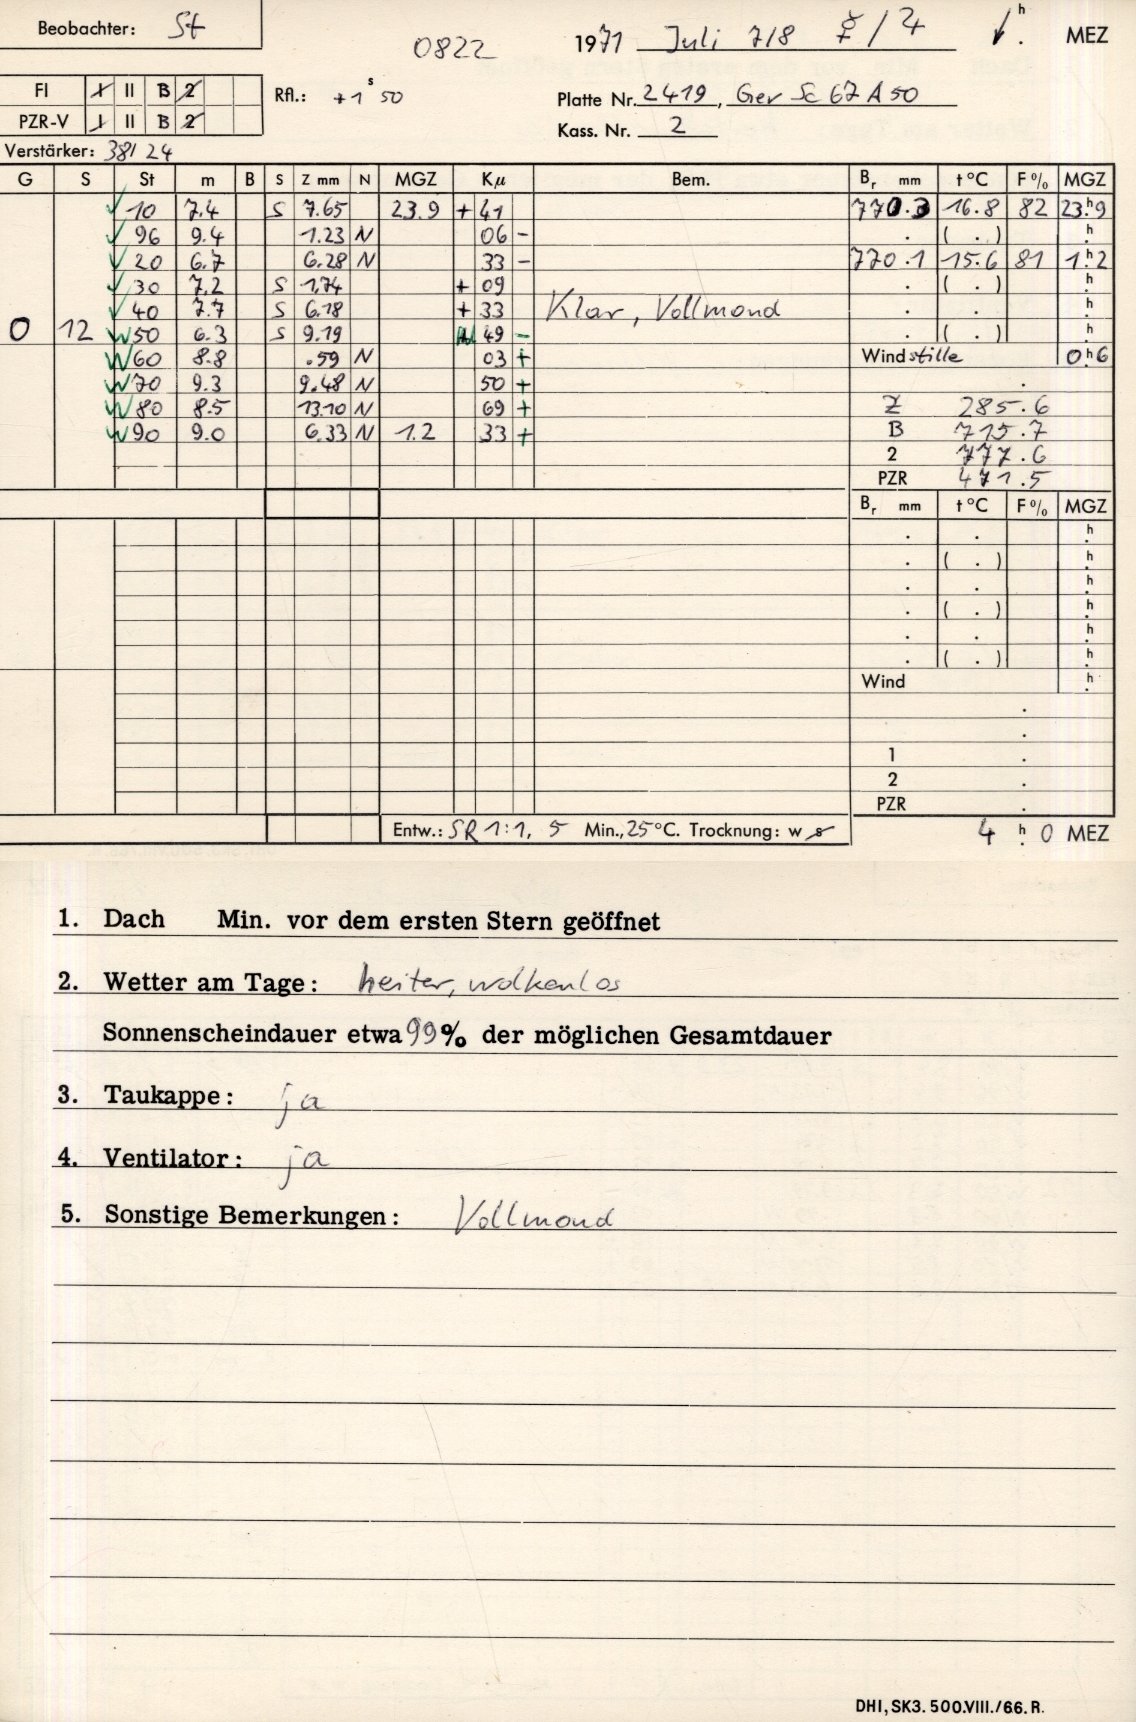 Beobachter: St
0822
1971 Juli 7/8 ☿ / ♃ h . MEZ
FI I II B 2
PZR-V I II B 2
Rfl.: +1 s 50
Platte Nr. 2419, Gev Sc 67 A 50
Kass. Nr. 2
Verstärker: 38/ 24
G S St m B S Z mm N MGZ Kμ Bem. Br mm t °C F % MGZ
✓ 10 7.4 S 7.65 23.9 + 41 770.3 16.8 82 23.h9
✓ 96 9.4 1.23 N 06 - . ( . ) h
✓ 20 6.7 6.28 N 33 - 770.1 15.6 81 1h2
✓ 30 7.2 S 1.74 + 09 . ( . ) h
✓ 40 7.7 S 6.18 + 33 Klar, Vollmond . . h
0 12 W 50 6.3 S 9.19 49 - . ( . ) h
W 60 8.8 .59 N 03 + Windstille 0h6
W 70 9.3 9.48 N 50 + .
W 80 8.5 13.10 N 69 + Z 285.6
W 90 9.0 6.33 N 1.2 33 + B 715.7
2 777.6
PZR 471.5
Br mm t °C F % MGZ
. . h
. ( . ) h
. . h
. ( . ) h
. . h
. ( . ) h
Wind h
.
.
1 .
2 .
PZR .
Entw.: SR 1:1, 5 Min., 25 °C. Trocknung: w s
4 h 0 MEZ
1. Dach Min. vor dem ersten Stern geöffnet
2. Wetter am Tage: heiter, wolkenlos
Sonnenscheindauer etwa 99% der möglichen Gesamtdauer
3. Taukappe: ja
4. Ventilator: ja
5. Sonstige Bemerkungen: Vollmond
DHI, SK3. 500.VIII./66. R.